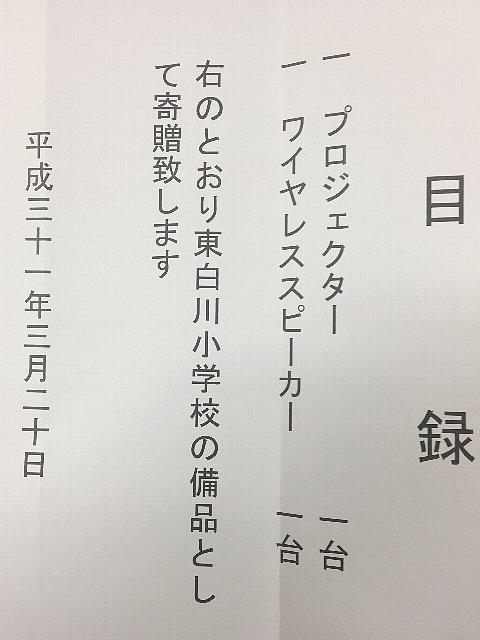 目録
一 プロジェクター 一台
一 ワイヤレススピーカー 一台
右のとおり東白川小学校の備品とし
て寄贈致します
平成三十一年三月二十日